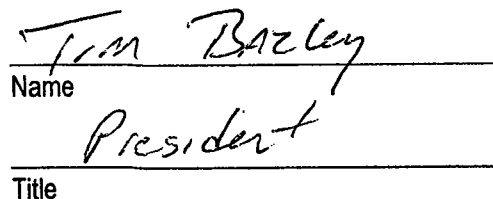 Tim Bazley
Name
President
Title